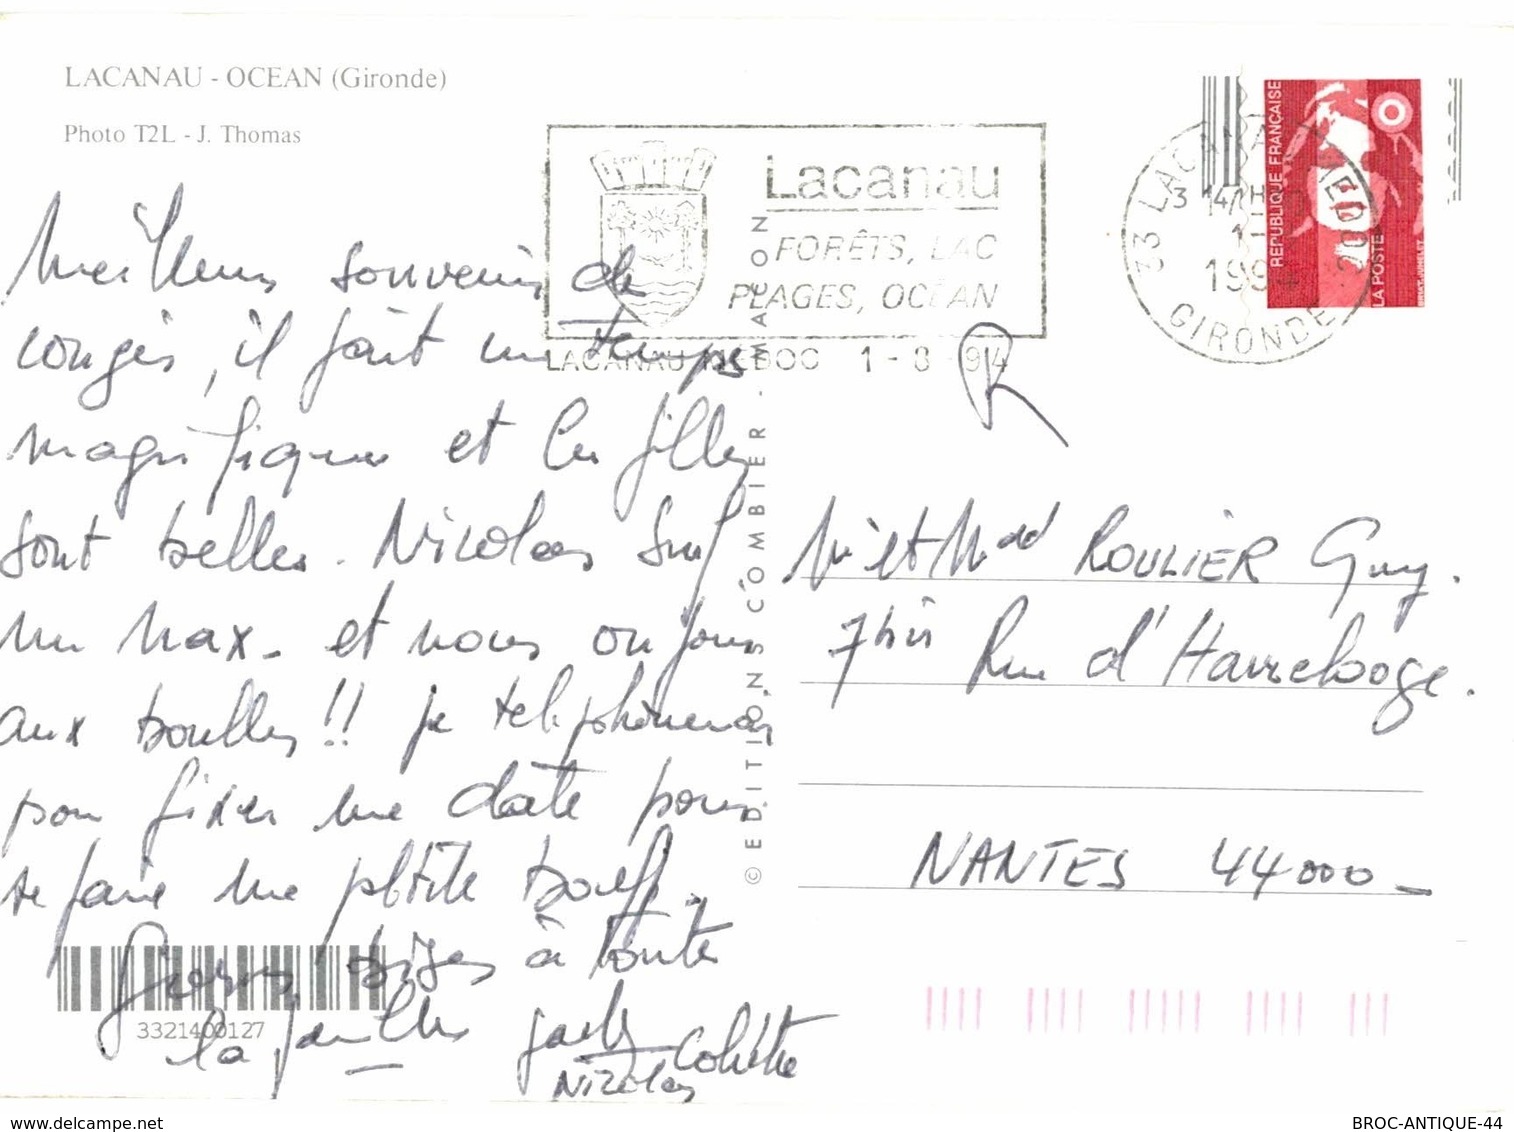 LACANAU - OCEAN (Gironde)
Photo T2L - J. Thomas
Lacanau
FORÊTS, LAC
PLAGES, OCÉAN
LACANAU MEDOC 1 - 8 - 94
33 LACANAU MEDOC
1994
GIRONDE
REPUBLIQUE FRANÇAISE
LA POSTE
Meilleurs souvenirs de
congés, il fait un temps
magnifique et les filles
sont belles. Nicolas surf
un max. et nous on joue
aux boulles!! je telephonerai
pour fixer une date pour
se faire une ptite bouff.
Grosses bises à toute
la famille
Colette
Nicolas
© EDITIONS COMBIER - MACON
3321400127
Mr et Mad ROULIER Guy.
7 bis Rue d'Harrebooge.
NANTES 44000 -
www.delcampe.net
BROC-ANTIQUE-44